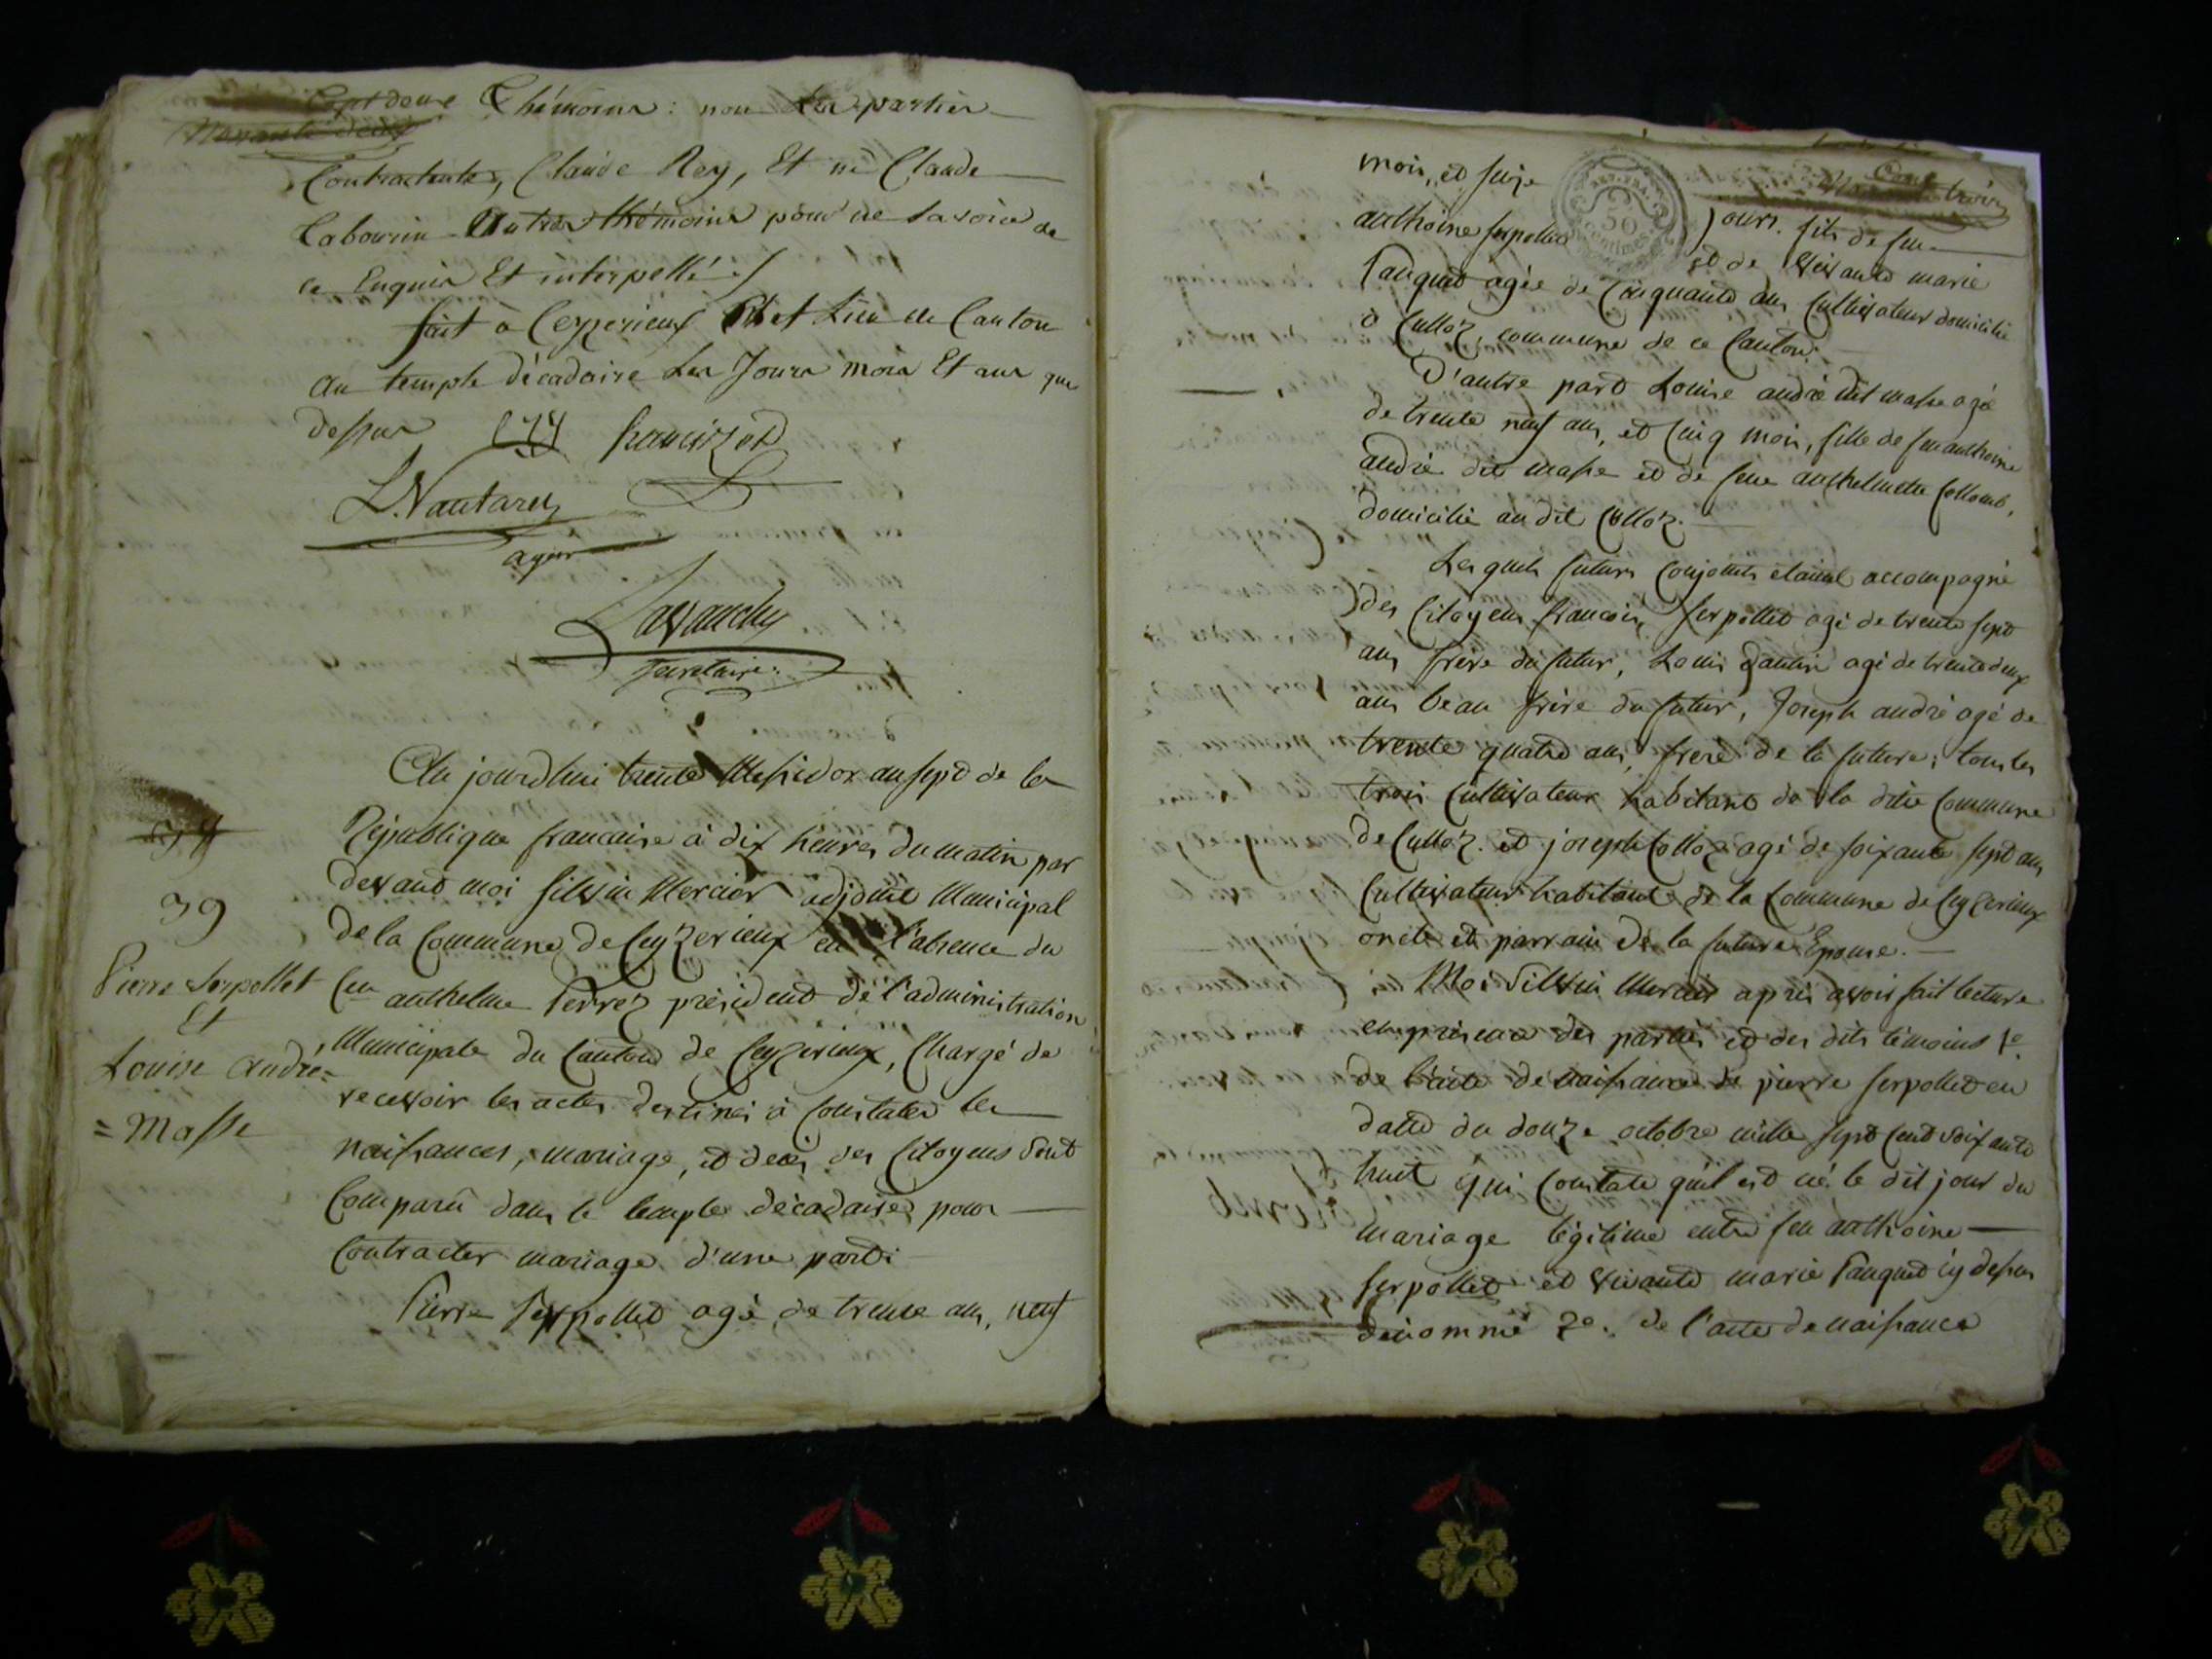 Thémoins: non les parties
Contractentes, Claude Rey, Et ni Claude
Cabourin Autres thémoins pour ne savoir de
ce Enquis Et interpellés
fait à Ceyzerieux Chef Lieu de Canton
Au temple décadaire Les Jours mois Et ans que
dessus
L. Nantarey
agen
Lavanchy
secretaire.
Au jourdhui trente Messidor an sept de la
République francaise à dix heures du matin par
devant moi silvin Mercier adjoint Municipal
de la Commune de Ceyzerieux en l'absence du
Cen anthelme Perrez président de l'administration
Municipale du Canton de Ceyzerieux, Chargé de
recevoir les actes destinés à Constater les
naissances, mariage, et deces des Citoyens sont
Comparû dans le temple décadaire pour
Contracter mariage d'une part
Pierre Serpollet agé de trente ans, neuf
39
Pierre Serpollet
Et
Louise André=
=Masse
mois, et seize jours. fils de feu
anthoine serpollet et de vivante marie
Pauquet agée de Cinquante ans Cultivateur domicilié
à Culloz, commune de ce Canton.
D'autre part Louise andré dit masse agé
de trente neuf ans, et Cinq mois, fille de feu anthoine
andré dit masse et de feue anthelmette Collomb,
domicilié au dit Culloz.
Lesquels futurs Conjoints étaient accompagné
des Citoyens francois Serpollet agé de trente sept
ans frère du futur, Louis Gantin agé de trente deux
ans beau frère du futur, Joseph andré agé de
trente quatre ans, frere de la future; tous les
trois Cultivateur habitant de la dite Commune
de Culloz. et joseph Colloz agé de soixante sept ans
Cultivateur habitant de la Commune de Ceyzerieux
oncle et parrain de la future Epouse.
Moi Silvin Mercier après avoir fait lecture
en présence des parties et des dits témoins 1°.
de l'acte de naissance de pierre serpollet en
datte du douze octobre mille sept cent soixante
huit qui Constate qu'il est né le dit jour du
mariage légitime entre feu anthoine
serpollet et vivante marie Pauquet cy dessus
dénommé 2°. de l'acte de naissance